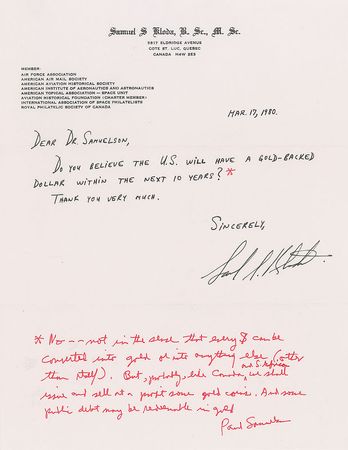 Samuel S Kloda, B. Sc., M. Sc.
5817 ELDRIDGE AVENUE
COTE ST. LUC, QUEBEC
CANADA H4W 2E3
MEMBER:
AIR FORCE ASSOCIATION
AMERICAN AIR MAIL SOCIETY
AMERICAN AVIATION HISTORICAL SOCIETY
AMERICAN INSTITUTE OF AERONAUTICS AND ASTRONAUTICS
AMERICAN TOPICAL ASSOCIATION — SPACE UNIT
AVIATION HISTORICAL FOUNDATION (CHARTER MEMBER)
INTERNATIONAL ASSOCIATION OF SPACE PHILATELISTS
ROYAL PHILATELIC SOCIETY OF CANADA
MAR. 17, 1980.
DEAR DR. SAMUELSON,
DO YOU BELIEVE THE U.S. WILL HAVE A GOLD-BACKED
DOLLAR WITHIN THE NEXT 10 YEARS? *
THANK YOU VERY MUCH.
SINCERELY,
* No -- not in the sense that every $ can be
converted into gold or into anything else (other
than itself). But, probably, like Canada and S. Africa, we shall
issue and sell at a profit some gold coins. And some
public debt may be redeemable in gold
Paul Samuelson